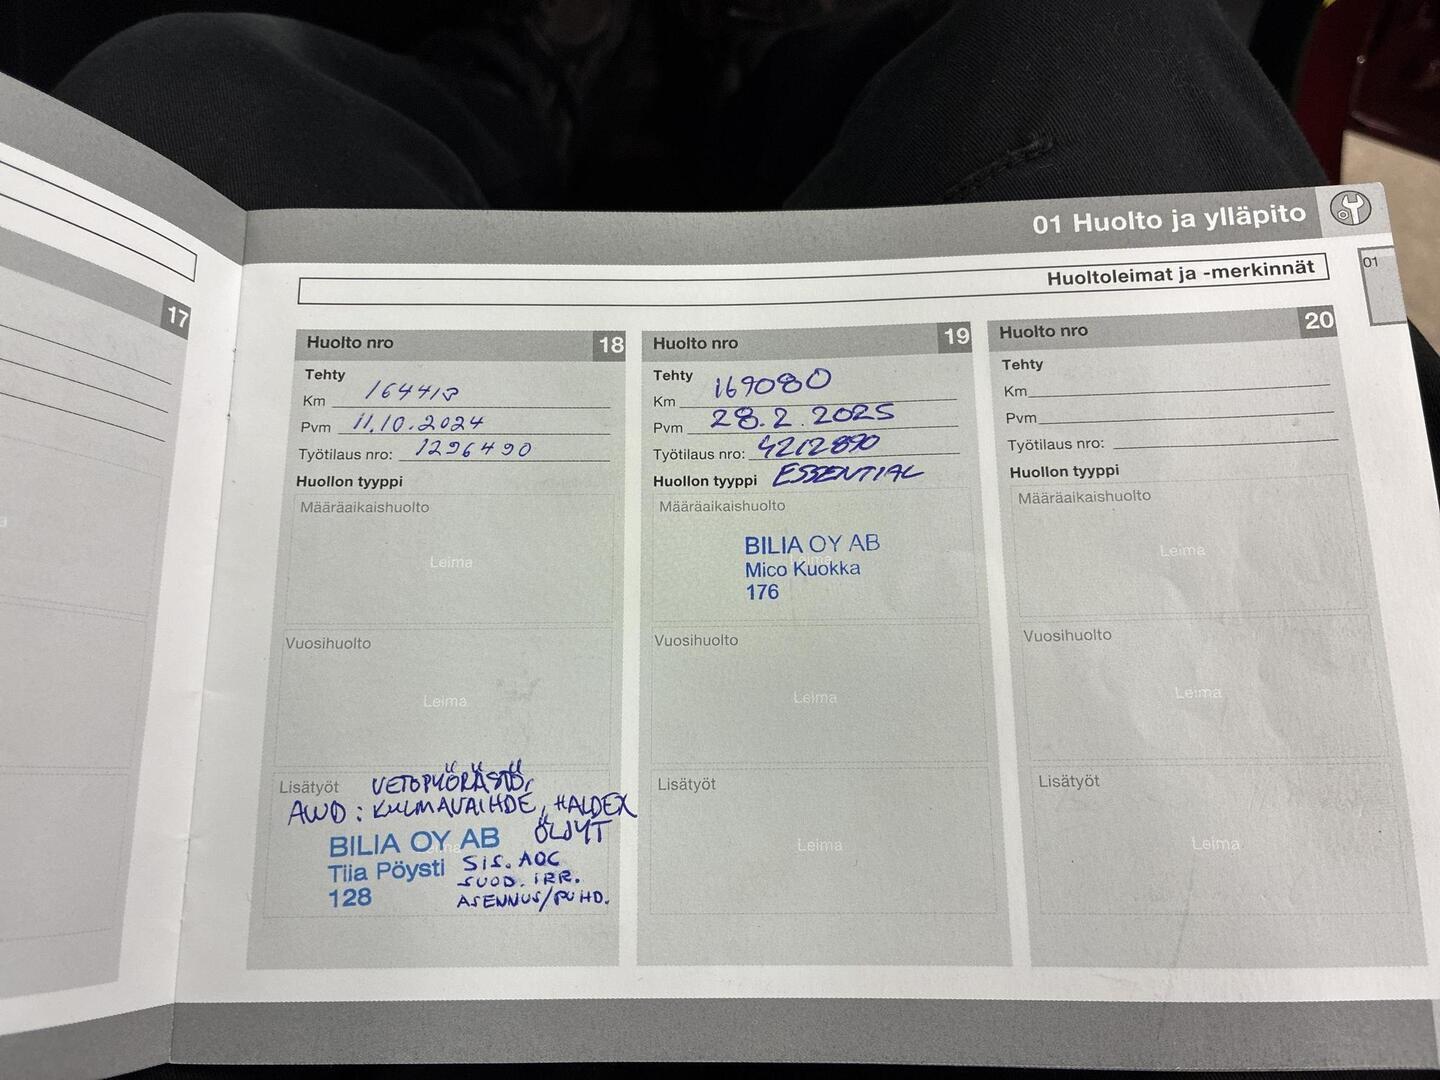 01 Huolto ja ylläpito
01
Huoltoleimat ja -merkinnät
17
Huolto nro 18
Tehty
Km 164418
Pvm 11.10.2024
Työtilaus nro: 1296490
Huollon tyyppi
Määräaikaishuolto
Leima
Vuosihuolto
Leima
Lisätyöt VETOPYÖRÄSTÖ,
AWD: KULMAVAIHDE, HALDEX
ÖLJYT
Leima
BILIA OY AB
Tiia Pöysti
128
SIS. AOC
SUOD. IRR.
ASENNUS/PUHD.
Huolto nro 19
Tehty
Km 169080
Pvm 28.2.2025
Työtilaus nro: 4212890
Huollon tyyppi ESSENTIAL
Määräaikaishuolto
Leima
BILIA OY AB
Mico Kuokka
176
Vuosihuolto
Leima
Lisätyöt
Leima
Huolto nro 20
Tehty
Km
Pvm
Työtilaus nro:
Huollon tyyppi
Määräaikaishuolto
Leima
Vuosihuolto
Leima
Lisätyöt
Leima